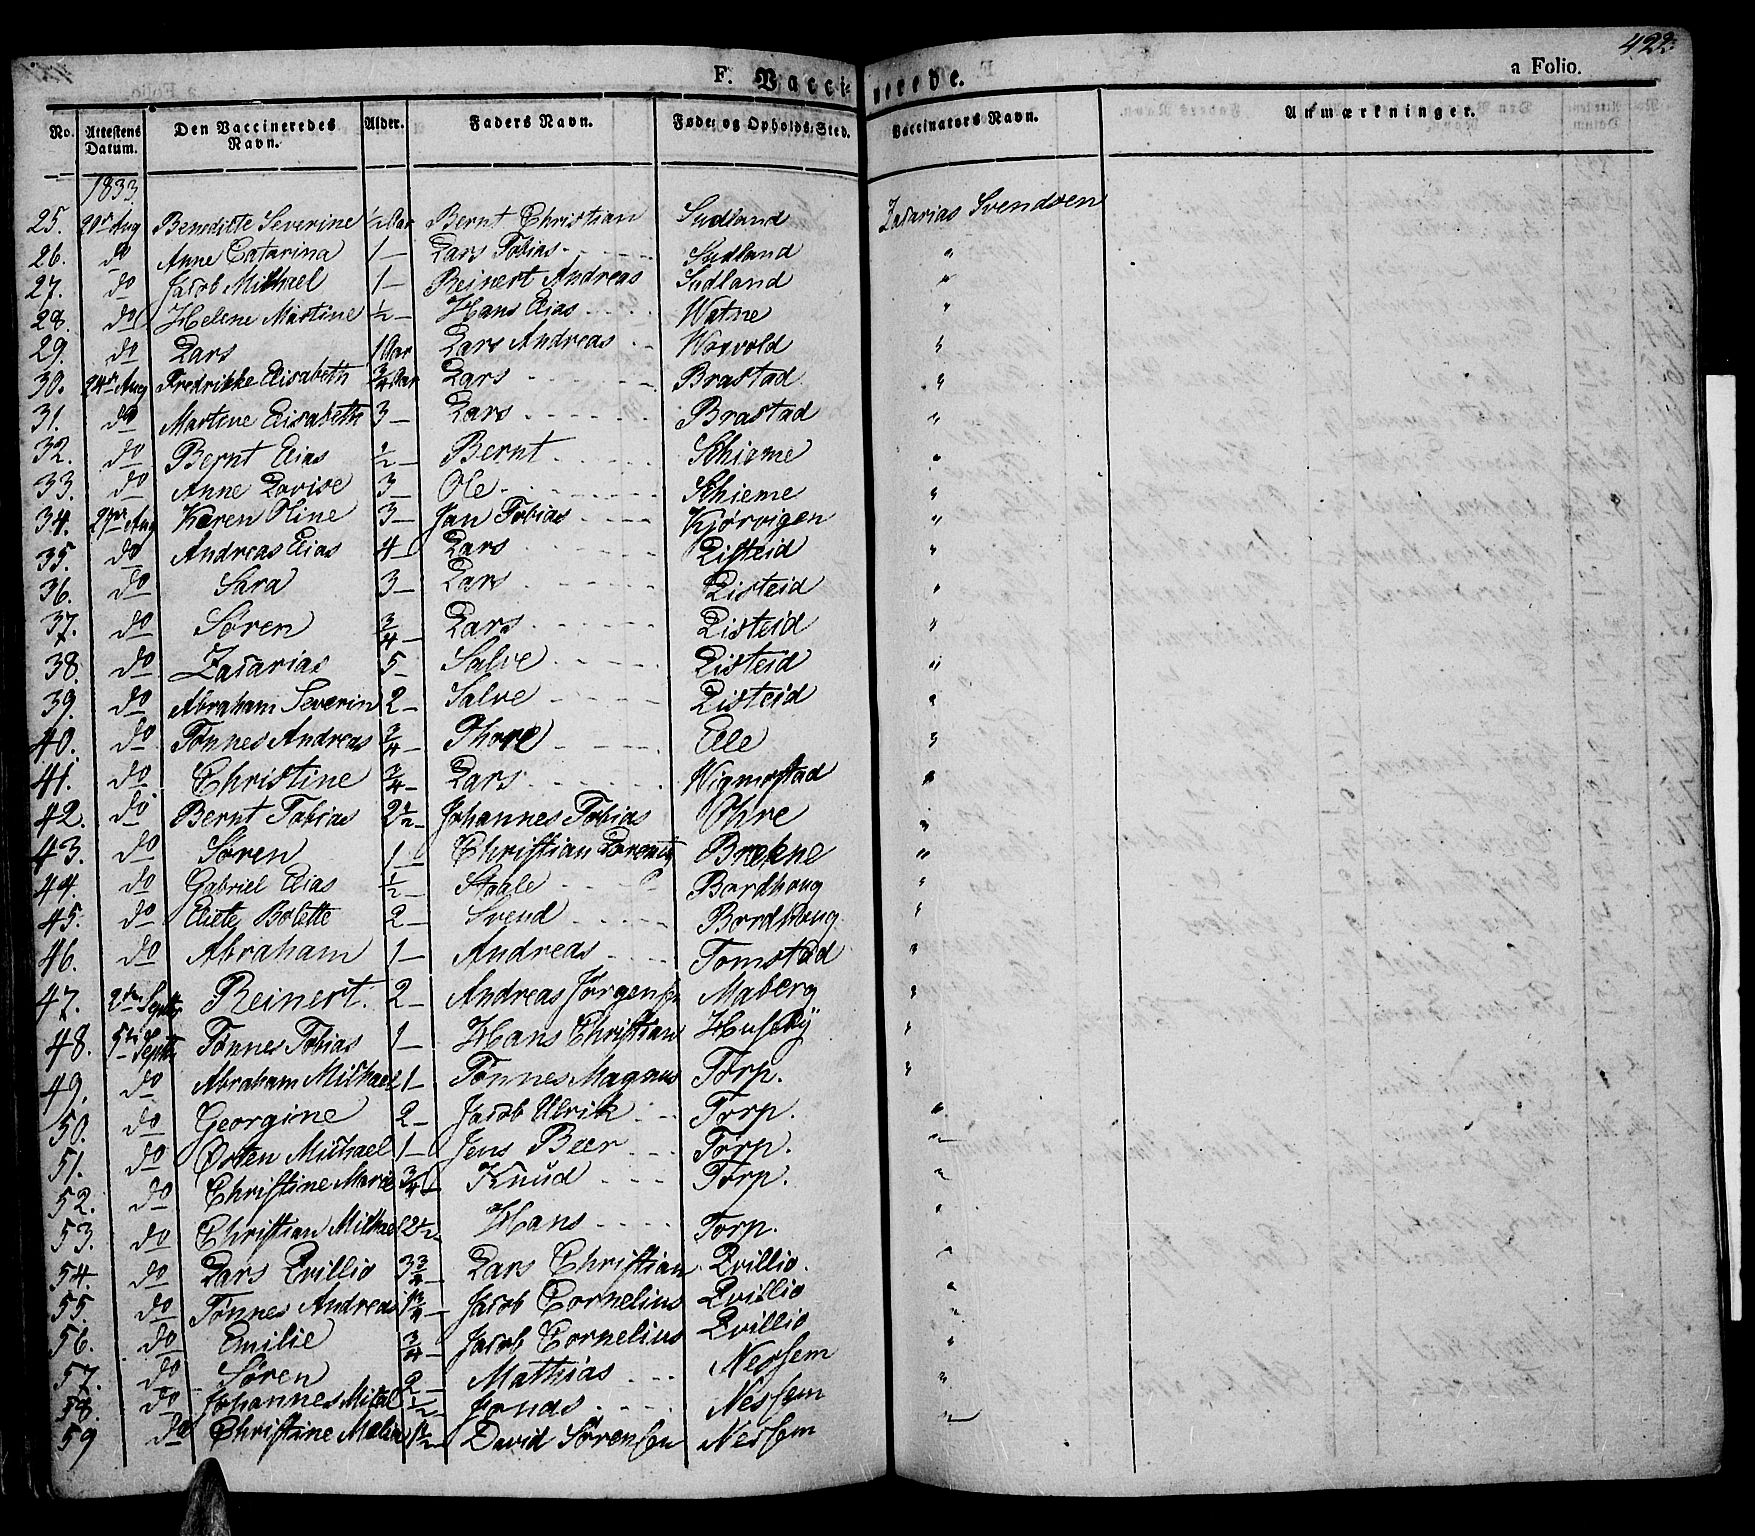 422.
F. Vaccinerede.
a Folio.
No. Attestens Datum. Den Vaccineredes Navn. Alder. Faders Navn. Føde- og Opholds-Sted. Vaccinators Navn. Anmærkninger.
1833
25. 21de Aug Benedicte Severine ½ Aar Bernt Christian Sudland Zacarias Svendsen
26. do Anne Catarina 1 — Lars Tobias - - - Sudland "
27. do Jacob Michael 1 — Reinert Andreas Sudland "
28. do Helene Martine ½ — Hans Elias - - - Watne "
29. do Lars 1 Aar Lars Andreas - - Woxvold "
30. 24de Aug Fredrikke Elisabeth ¾ Aar Lars - - - Brastad "
31. do Martine Elisabeth 3 — Lars - - - Brastad "
32. do Bernt Elias ½ — Bernt - - - Schieme "
33. do Anne Lovise 3 — Ole - - - Schieme "
34. 27de Aug Karen Oline 3 — Jan Tobias - - - Kjørvigen "
35. do Andreas Elias 4 — Lars - - - Listeid "
36. do Sara 3 — Lars - - - Listeid "
37. do Søren ¾ — Lars - - - Listeid "
38. do Zacarias 5 — Salve - - - Listeid "
39. do Abraham Severin 2 — Salve - - - Listeid "
40. do Tønnes Andreas ¾ — Thore - - - Elle "
41. do Christine ¾ — Lars - - - Wigmostad "
42. do Bernt Tobias 2½ — Johannes Tobias Ohre "
43. do Søren 1 — Christian Lorentz Brekne "
44. do Gabriel Elias ½ — Staale - - Bordhoug "
45. do Elete Bolette 2 — Svend - - - Bordhoug "
46. do Abraham 1 — Andreas - - - Tomstad "
47. 2den Septbr Reinert. 2 — Andreas Jørgensen Maberg "
48. 5te Septbr Tønnes Tobias 1 — Hans Christian Huseby "
49. do Abraham Michael 1 — Tønnes Magnus Torp. "
50. do Georgine 2 — Jacob Ulrik - - Torp. "
51. do Østen Michael 1 — Jens Beer - - - Torp. "
52. do Christine Marie ¾ — Knud - - - Torp. "
53. do Christian Michael 2½ Hans - - - - Torp. "
54. do Lars Qvillio 3¾ — Lars Christian Qvillio. "
55. do Tønnes Andreas 1¾ — Jacob Cornelius Qvillio "
56. do Emilie ¾ — Jacob Cornelius Qvillio "
57. do Søren 2 — Mathias - - - Nessem "
58. do Johannes Michal 1½ — Jonas - - - - Nessem "
59 do Christine Malia 1½ — David Sørensen Nessem "